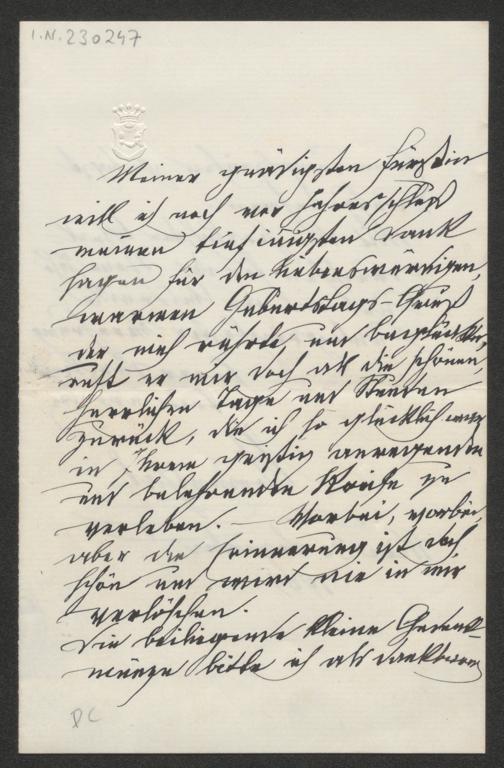 I.N. 230247
Meiner gnädigsten Fürstin
will ich noch vor Jahresschluß
meinen tief innigsten Dank
sagen für den liebenswürdigen,
warmen Geburtstags-Gruß
der mich rührte, und beglückte,
ruft er mir doch all die schönen,
herrlichen Tage und Stunden
zurück, die ich so glücklich war
in Ihrem geistig anregenden
und belehrenden Kreise zu
verleben. – Vorbei, vorbei,
aber die Erinnerung ist doch
schön und wird nie in mir
verlöschen.
Die beiliegende kleine Gedenk-
münze bitte ich als